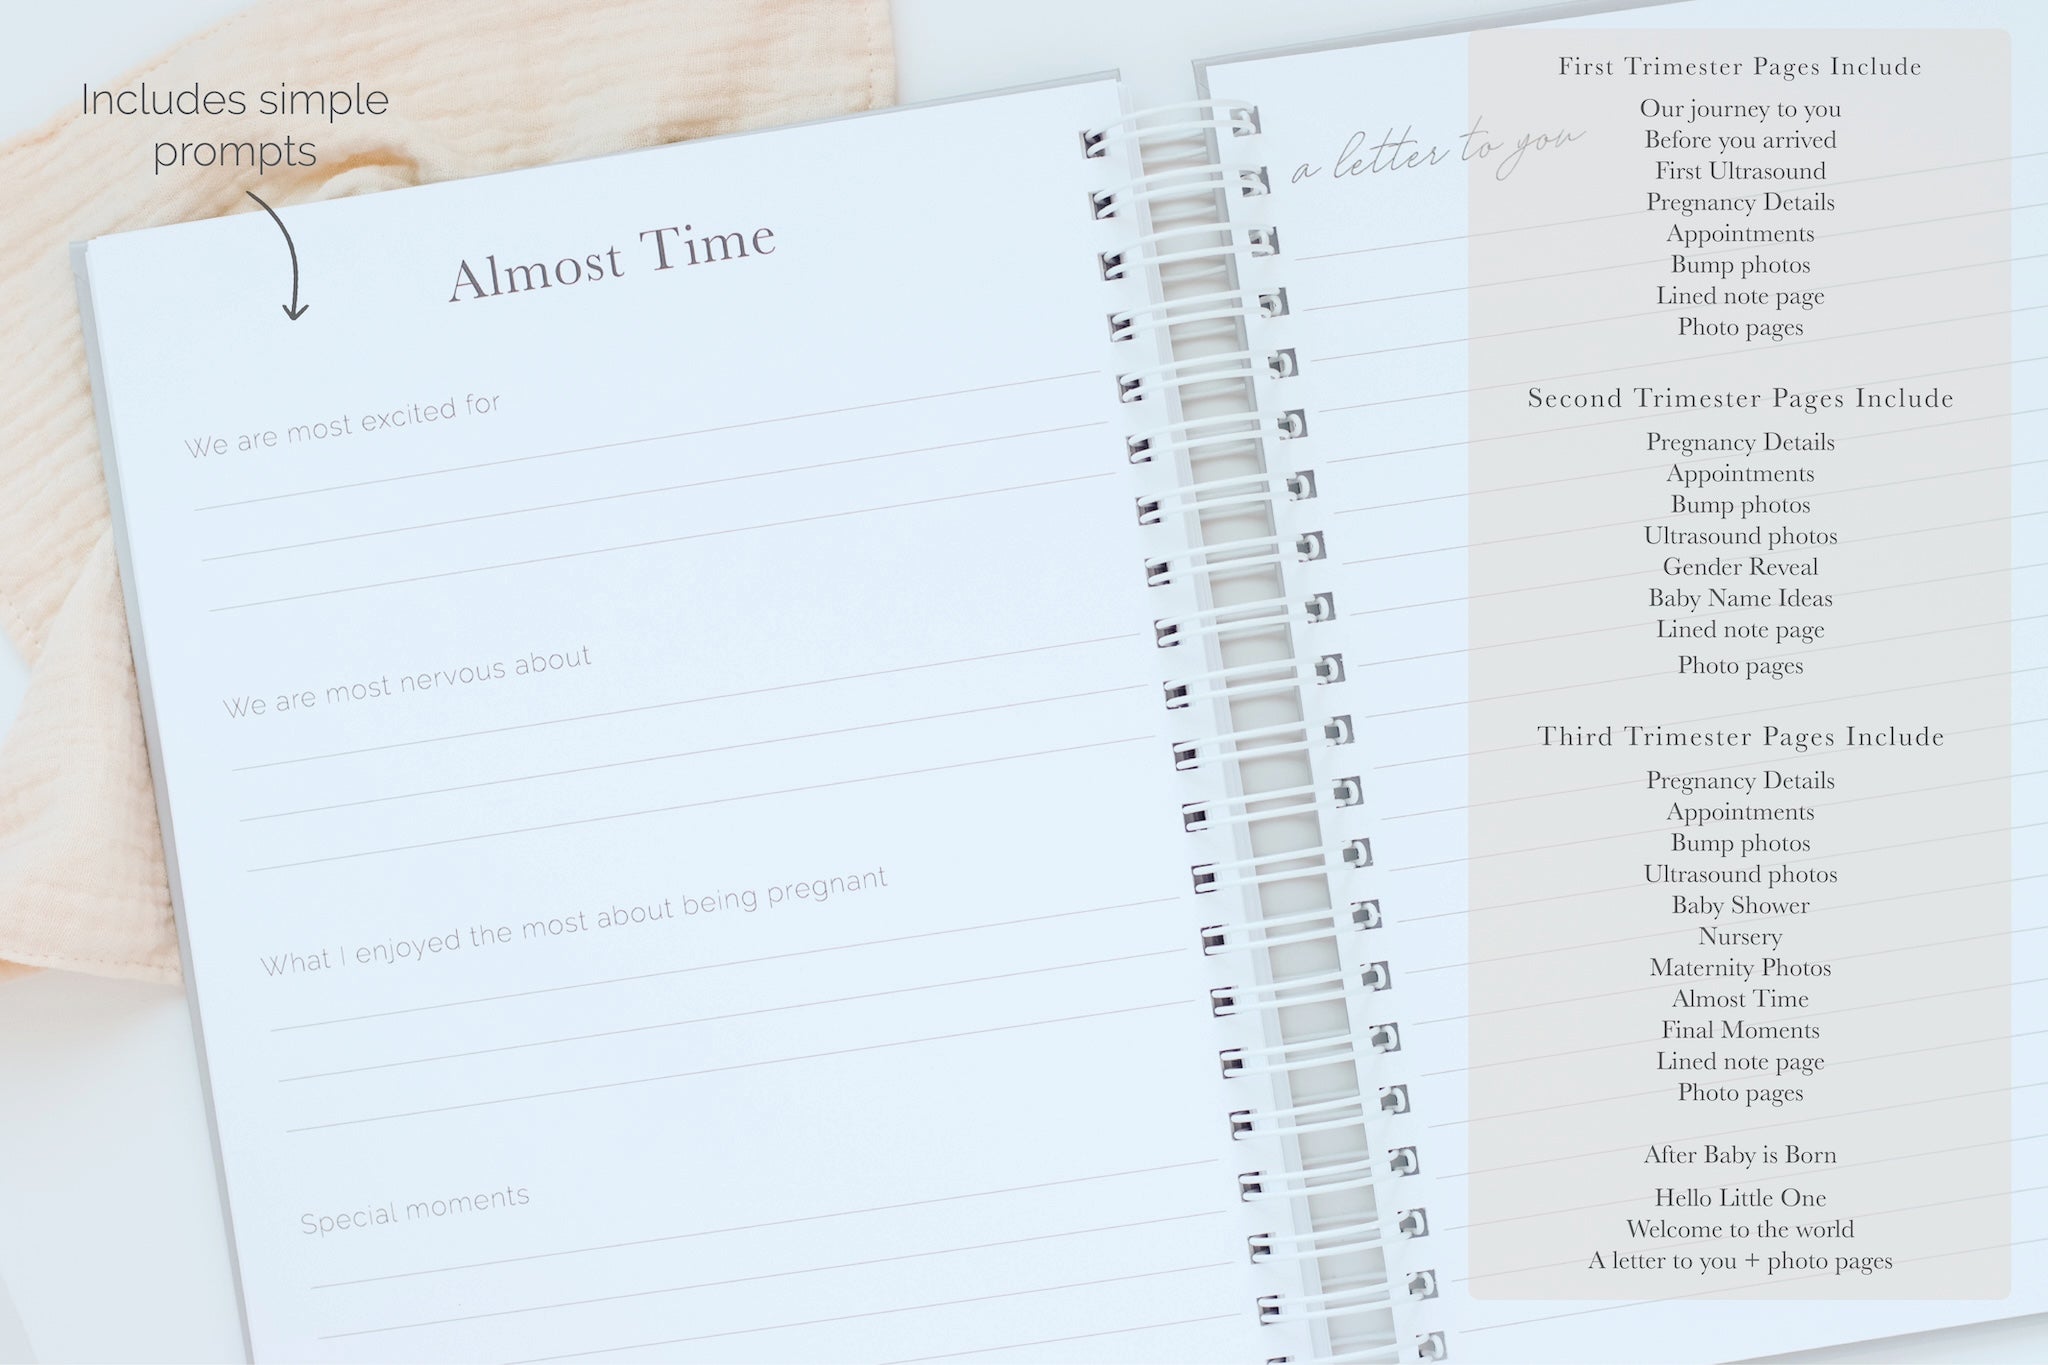 Includes simple
prompts
Almost Time
We are most excited for
We are most nervous about
What I enjoyed the most about being pregnant
Special moments
a letter to you
First Trimester Pages Include
Our journey to you
Before you arrived
First Ultrasound
Pregnancy Details
Appointments
Bump photos
Lined note page
Photo pages
Second Trimester Pages Include
Pregnancy Details
Appointments
Bump photos
Ultrasound photos
Gender Reveal
Baby Name Ideas
Lined note page
Photo pages
Third Trimester Pages Include
Pregnancy Details
Appointments
Bump photos
Ultrasound photos
Baby Shower
Nursery
Maternity Photos
Almost Time
Final Moments
Lined note page
Photo pages
After Baby is Born
Hello Little One
Welcome to the world
A letter to you + photo pages